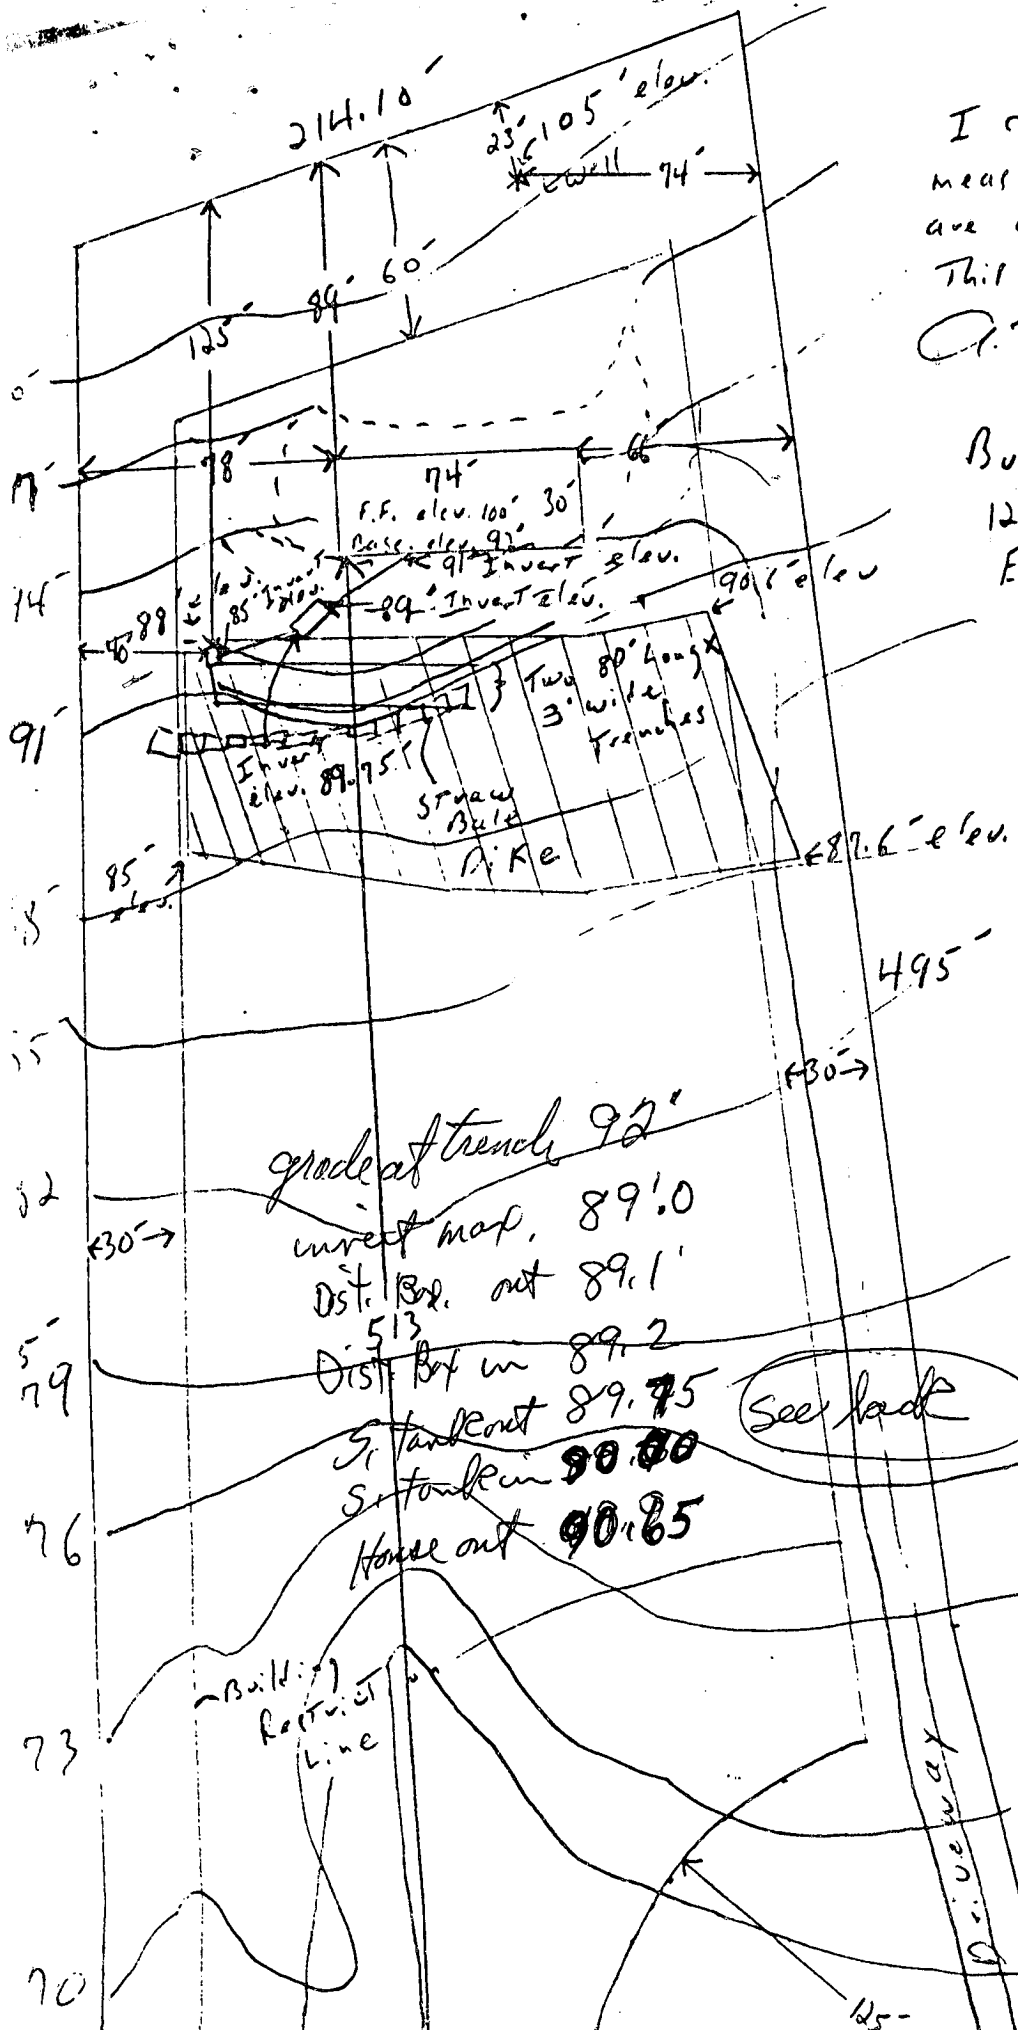 214.10'
23'
105' elev.
well
74'
I
meas
are
This
60'
89'
125'
78'
74'
66'
Bu
12
E
F.F. elev. 100'
30'
Base. elev. 92'
91' Invert elev.
89' Invert Elev.
90.6' elev
88'
85'
40'
91'
Two 80' Long x
3' wide
Trenches
Invert
elev. 89.75'
Straw
Bale
Dike
85'
elev.
87.6' elev.
495'
30'
grade at trench 92'
82
invert max. 89'.0
30'
Dist. Box. out 89.1'
513
Dist. Box in 89.2
79
S. tank out 89.75
see back
S. tank in
76
House out 90.85
Building
Restrict
Line
73
Driveway
70
125-